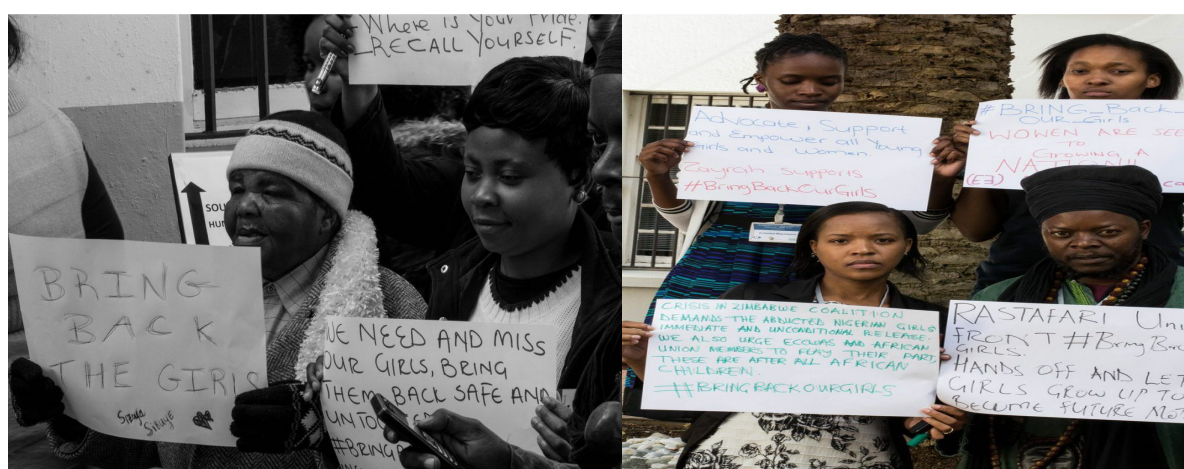 Where is Your Pride.
RECALL YOURSELF.
SOU
HU
BRING
BACK
THE GIRLS
WE NEED AND MISS
OUR GIRLS, BRING
THEM BACK SAFE AND
Advocate, Support
and Empower all Young
Girls and Women.
Zayrah supports
#BringBackOurGirls
#BRING Back
OUR Girls
WOMEN ARE SEE
TO
GROWING A
NATION!!
CRISIS IN ZIMBABWE COALITION
DEMANDS THE ABDUCTED NIGERIAN GIRLS
IMMEDIATE AND UNCONDITIONAL RELEASE.
WE ALSO URGE ECOWAS AND AFRICAN
UNION MEMBERS TO PLAY THEIR PART,
THESE ARE AFTER ALL AFRICAN
CHILDREN.
#BRINGBACKOURGIRLS
RASTAFARI Uni
FRONT #Bring
GIRLS.
HANDS OFF AND LET
GIRLS GROW UP TO
BECOME FUTURE